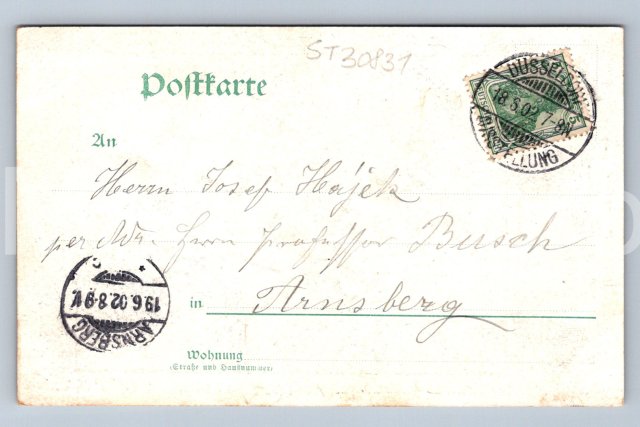 ST30831
Postkarte
DÜSSELDORF
18.6.02.7-8N.
AUSSTELLUNG
An
Herrn Josef Hajek
per Adr. Herrn Professor Busch
in Arnsberg
ARNSBERG
19.6.02.8-9V.
Wohnung
(Straße und Hausnummer)